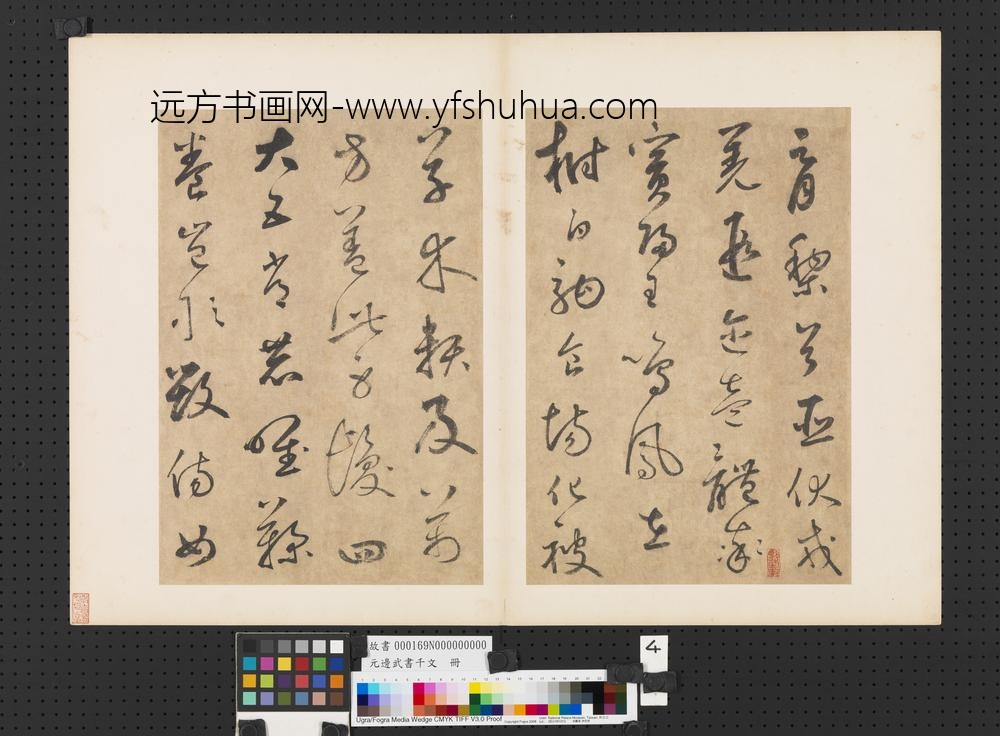 远方书画网-www.yfshuhua.com
育黎首臣伏戎
羌遐迩壹體率
賓歸王鳴鳳在
樹白駒食場化被
草木賴及萬
方蓋此身髮四
大五常恭惟鞠
養豈敢毀傷女
故書 000169N000000000
元邊武書千文 冊
4
Ugra/Fogra Media Wedge CMYK TIFF V3.0 Proof